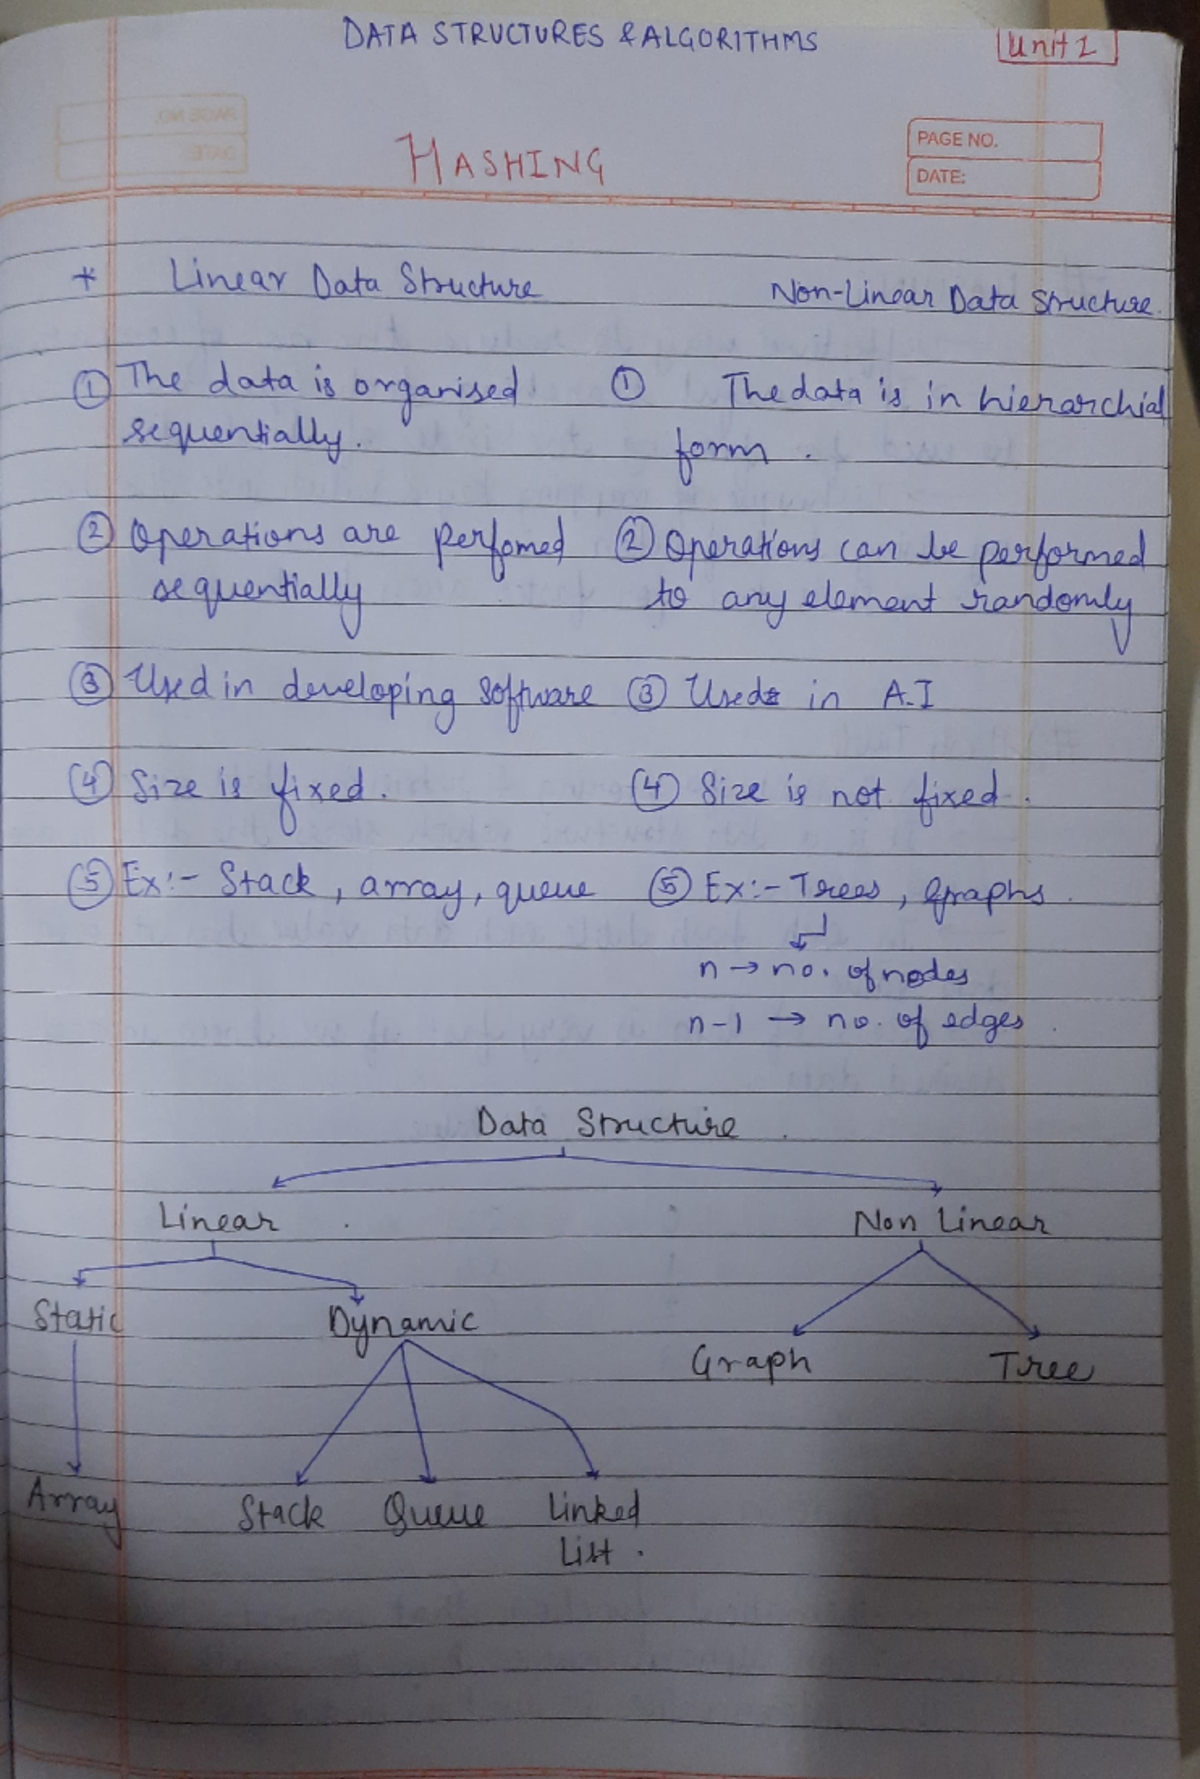 DATA STRUCTURES & ALGORITHMS
Unit 1
HASHING
PAGE NO.
DATE:
* Linear Data Structure Non-Linear Data Structure.
① The data is organised ① The data is in hierarchial
sequentially. form.
② Operations are perfomed ② Operations can be performed
sequentially to any element randomly
③ Used in developing software ③ Used in A.I
④ Size is fixed. ④ Size is not fixed.
⑤ Ex:- Stack, array, queue ⑤ Ex:- Trees, graphs.
n → no. of nodes
n-1 → no. of edges.
Data Structure.
Linear Non Linear
Static Dynamic
Graph Tree
Array Stack Queue Linked
List.